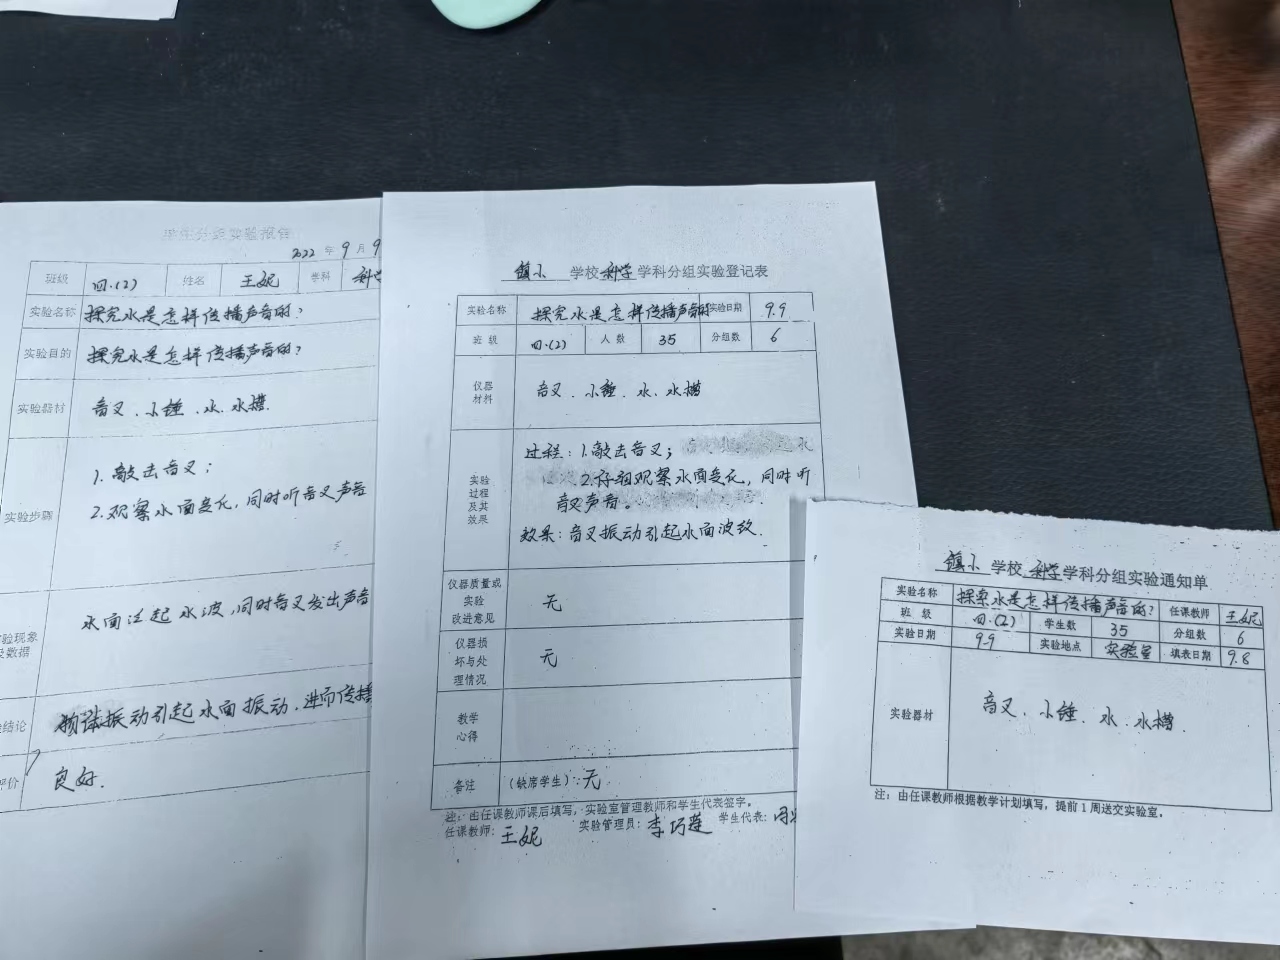 学生分组实验报告
2022年9月9
班级 四.(2) 姓名 王妮 学科 科学
实验名称 探究水是怎样传播声音的?
实验目的 探究水是怎样传播声音的?
实验器材 音叉.小锤.水.水槽.
实验步骤
1.敲击音叉;
2.观察水面变化,同时听音叉声音
验现象
及数据
水面泛起水波,同时音叉发出声音
结论 物体振动引起水面振动.进而传播
评价 良好.
镇小学校科学学科分组实验登记表
实验名称 探究水是怎样传播声音的 实验日期 9.9
班级 四.(2) 人数 35 分组数 6
仪器
材料
音叉.小锤.水.水槽
实验
过程
及其
效果
过程:1.敲击音叉;
2.仔细观察水面变化,同时听
音叉声音。
效果:音叉振动引起水面波纹.
仪器质量或
实验
改进意见
无
仪器损
坏与处
理情况
无
教学
心得
备注 (缺席学生):无
注:由任课教师课后填写,实验室管理教师和学生代表签字。
任课教师:王妮 实验管理员:李巧莲 学生代表:
镇小学校科学学科分组实验通知单
实验名称 探索水是怎样传播声音的? 任课教师 王妮
班级 四.(2) 学生数 35 分组数 6
实验日期 9.9 实验地点 实验室 填表日期 9.8
实验器材 音叉.小锤.水.水槽.
注:由任课教师根据教学计划填写,提前1周送交实验室。